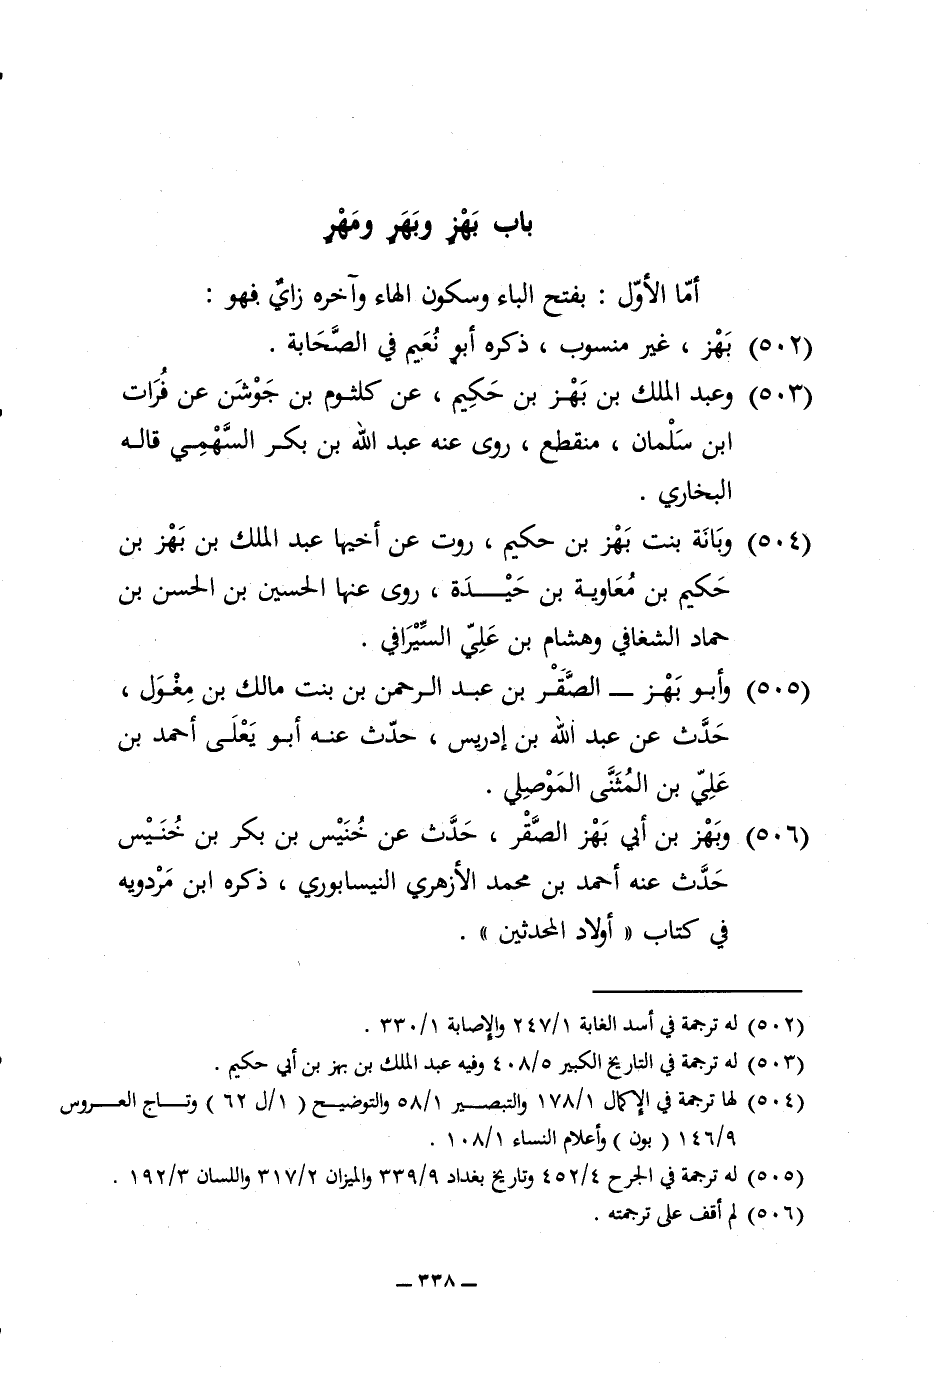 باب بَهْزٍ وبَهَرٍ ومَهْرٍ
أمّا الأوّل : بفتح الباء وسكون الهاء وآخره زايٌ فهو :
(٥٠٢) بَهْز ، غير منسوب ، ذكره أبو نُعَيم في الصَّحَابة .
(٥٠٣) وعبد الملك بن بَهْـز بن حَكِيم ، عن كلثـوم بن جَوْشَن عن فُرَات
ابن سَلْمان ، منقطع ، روى عنه عبد الله بن بكـر السَّهْمِـي قالـه
البخاري .
(٥٠٤) وبَانَة بنت بَهْز بن حكيم ، روت عن أخيها عبد الملك بن بَهْز بن
حَكيم بن مُعَاويـة بن حَيْـــدَة ، روى عنها الحسين بن الحسن بن
حماد الشغافي وهشام بن عَلِيّ السِّيْرَافي .
(٥٠٥) وأبـو بَهْـز ــ الصَّقْـر بن عبـد الرحمن بن بنت مالك بن مِغْـوَل ،
حَدَّث عن عبد الله بن إدريس ، حدّث عنـه أبـو يَعْلَـى أحمد بن
عَلِيّ بن المُثَنَّى المَوْصِلي .
(٥٠٦) وبَهْز بن أبي بَهْز الصَّقْر ، حَدَّث عن خُنَيْس بن بكر بن خُنَـيْس
حَدَّث عنه أحمد بن محمد الأزهري النيسابوري ، ذكره ابن مَرْدويه
في كتاب « أولاد المحدثين » .
(٥٠٢) له ترجمة في أسد الغابة ٢٤٧/١ والإصابة ٣٣٠/١ .
(٥٠٣) له ترجمة في التاريخ الكبير ٤٠٨/٥ وفيه عبد الملك بن بهز بن أبي حكيم .
(٥٠٤) لها ترجمة في الإكمال ١٧٨/١ والتبصــير ٥٨/١ والتوضيــح ( ١/ل ٦٢ ) وتــــاج العــــروس
١٤٦/٩ ( بون ) وأعلام النساء ١٠٨/١ .
(٥٠٥) له ترجمة في الجرح ٤٥٢/٤ وتاريخ بغداد ٣٣٩/٩ والميزان ٣١٧/٢ واللسان ١٩٢/٣ .
(٥٠٦) لم أقف على ترجمته .
ــ ٣٣٨ ــ